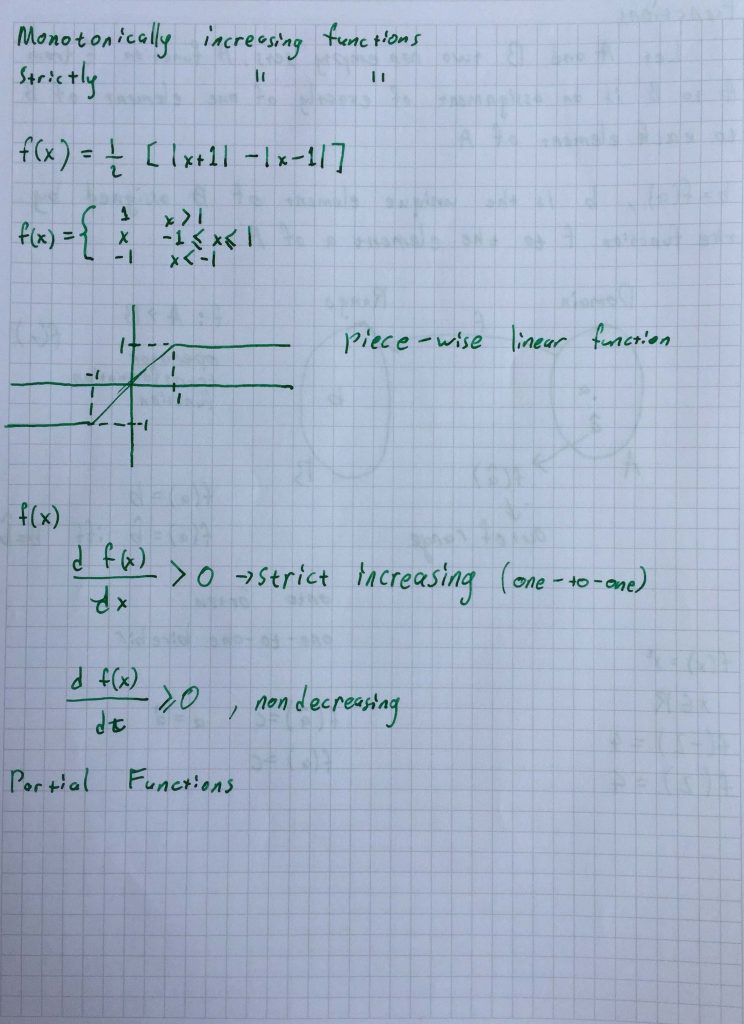 Monotonically increasing functions
Strictly " "
f(x) = 1/2 [ |x+1| - |x-1| ]
f(x) = { 1 x > 1
x -1 ≤ x ≤ 1
-1 x < -1
1
-1
1
-1
piece-wise linear function
f(x)
d f(x) / dx > 0 → strict increasing (one-to-one)
d f(x) / dx ≥ 0 , nondecreasing
Partial Functions